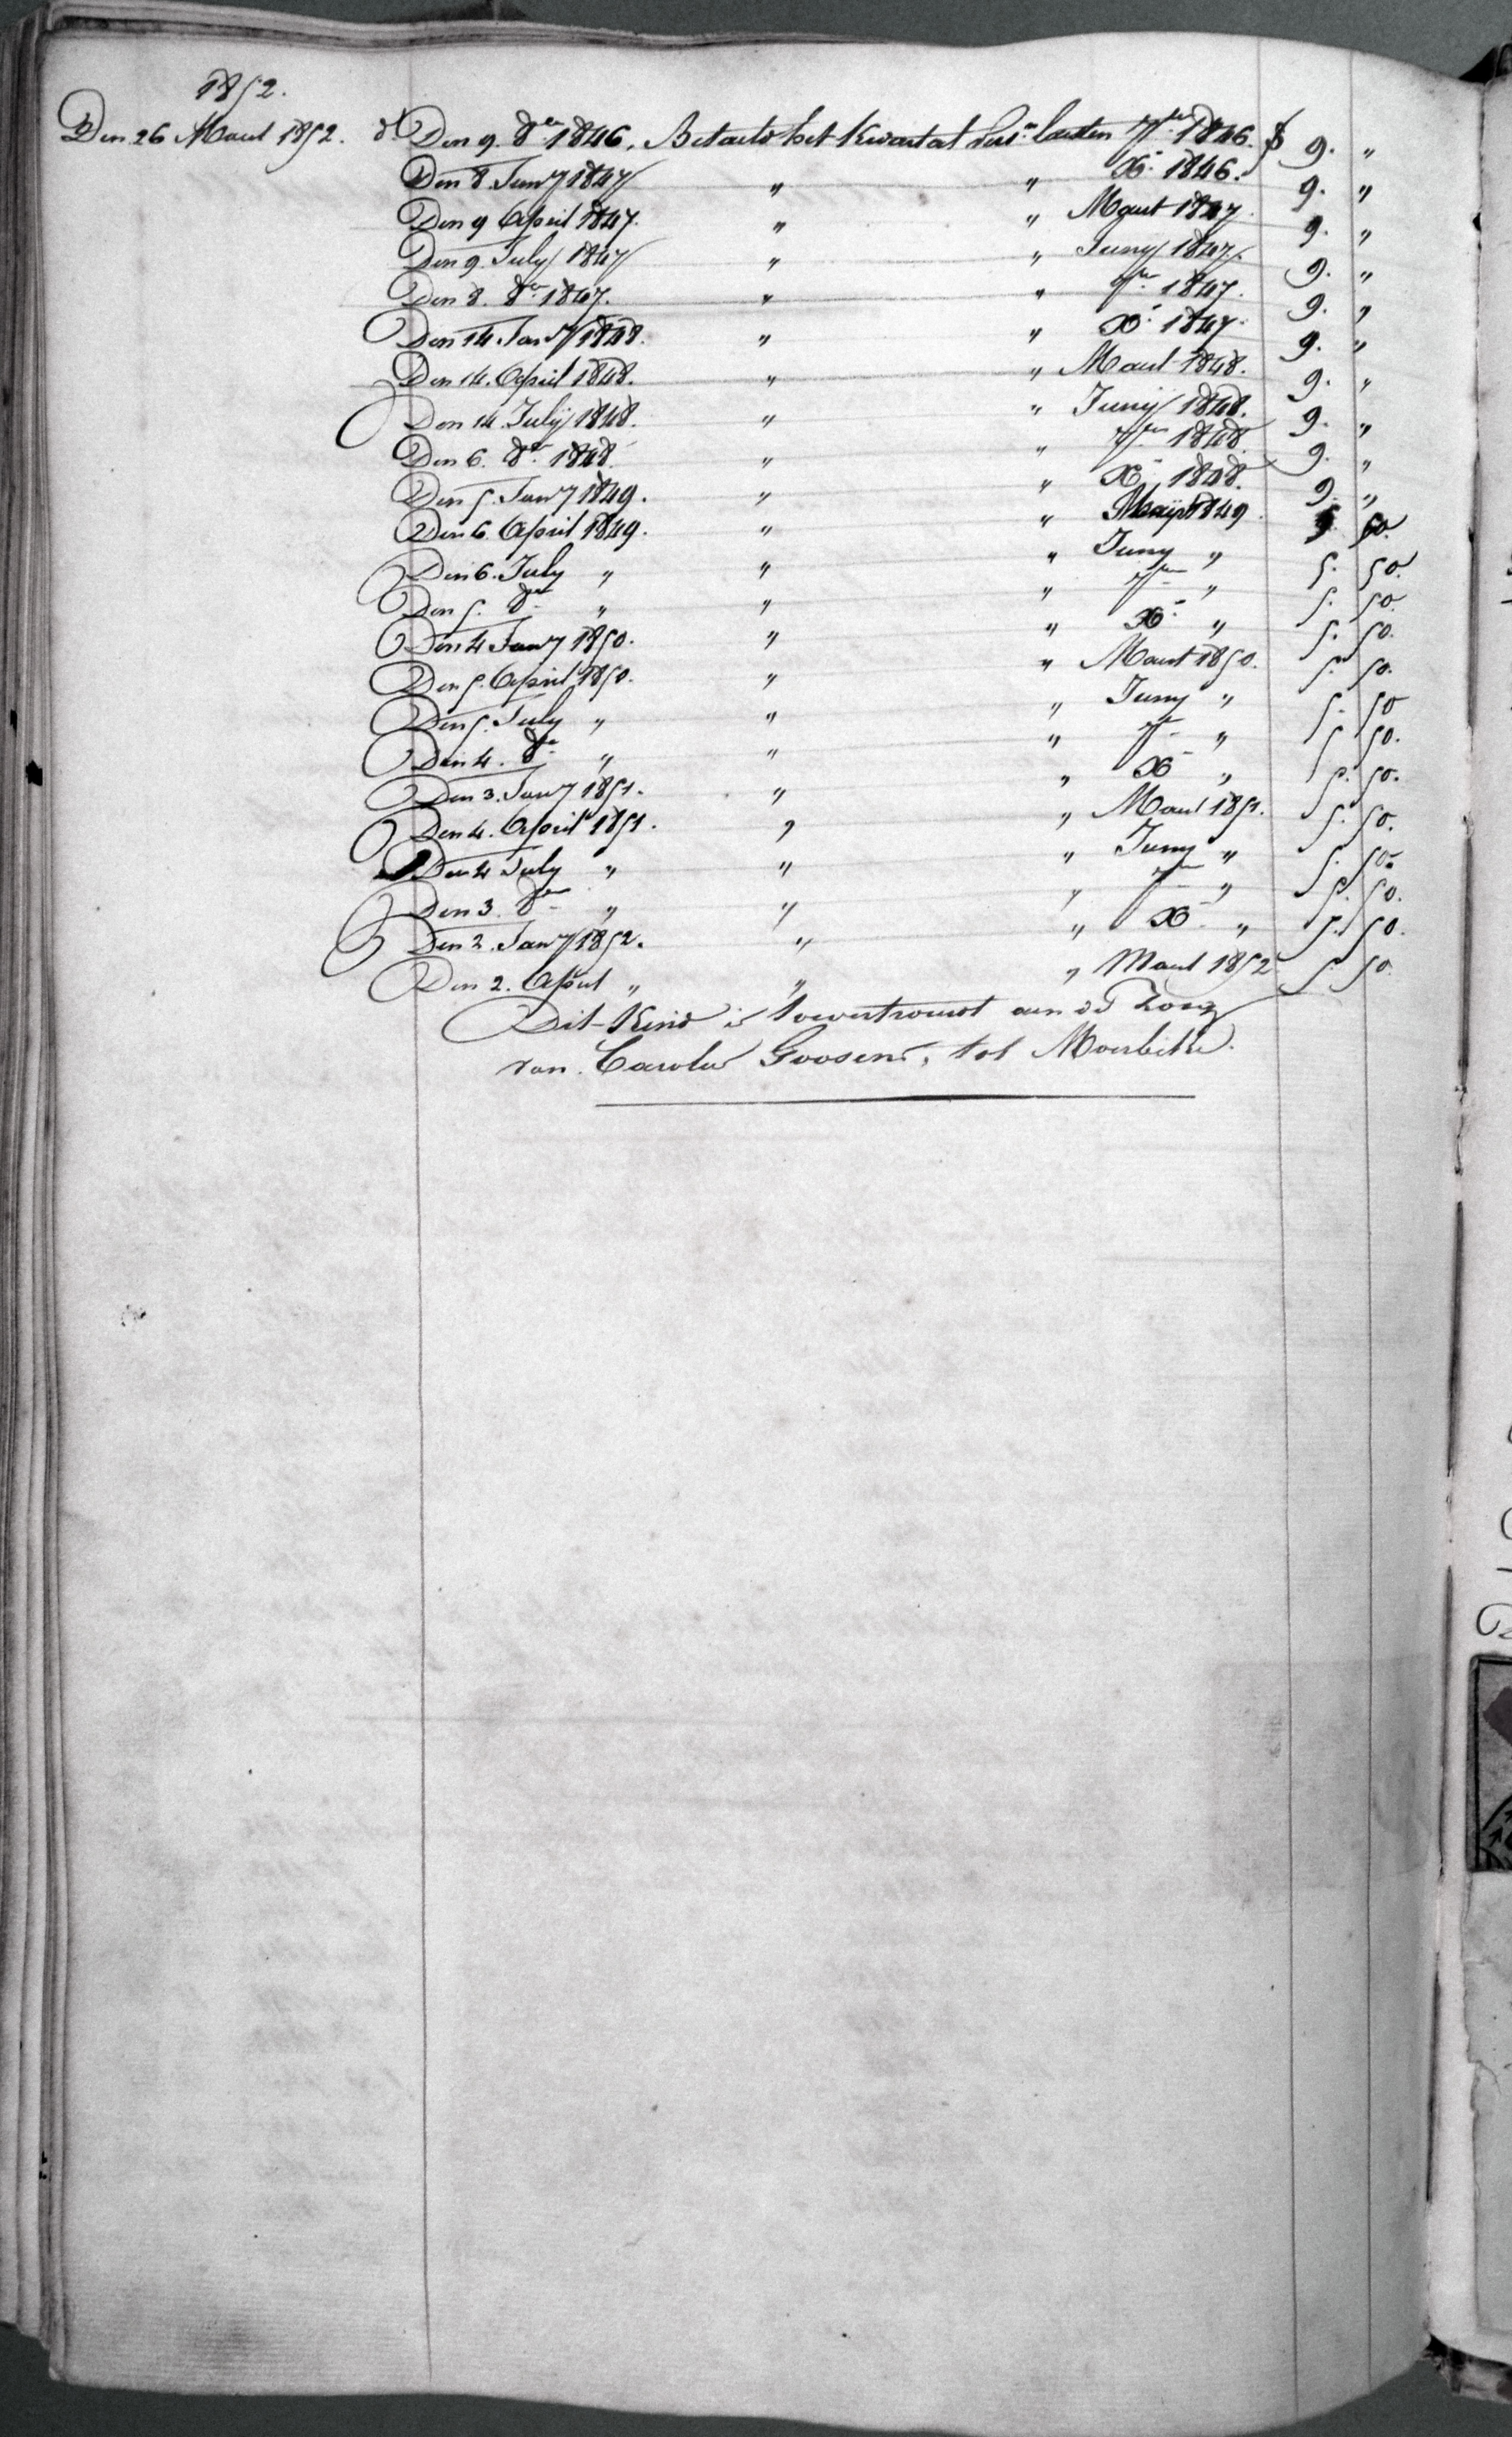 1852.
Den 26 Maart 1852. Den 9. 8er 1846, Betaeld het Kwartael laesten 7ber 1846. 9. "
Den 8 Jany 1847 " " Xr 1846. 9. "
Den 9 April 1847. " " Maert 1847. 9. "
Den 9. July 1847 " " Juny 1847. 9. "
Den 8. 8er 1847. " " 7er 1847. 9. "
Den 14 Jany 1848. " " Xr 1847. 9. "
Den 14. April 1848. " " Maert 1848. 9. "
Den 14. July 1848. " " Juny 1848. 9. "
Den 6. 8er 1848. " " 7er 1848 9. "
Den 5. Jany 1849. " " Xr 1848. 9. "
Den 6. April 1849. " " 1849. 5. 50.
Den 6. July " " " Juny " 5. 50.
Den 5. 8er " " " 7er " 5. 50.
Den 4 Jany 1850. " " Xr " 5. 50.
Den 5. April 1850. " " Maert 1850. 5. 50.
Den 5. July " " " Juny " 5. 50
Den 4. 8er " " " 7er " 5. 50.
Den 3. Jany 1851. " " Xr " 5. 50.
Den 4. April 1851. " " Maert 1851. 5. 50.
Den 4 July " " " Juny " 5. 50.
Den 3. 8er " " " 7er " 5. 50.
Den 2. Jany 1852. " " Xr " 5. 50.
Den 2. April " " " Maert 1852 5. 50.
Dit Kind is toevertrouwt aen de Zorg
van Carolus Goosens, tot Moerbeke.